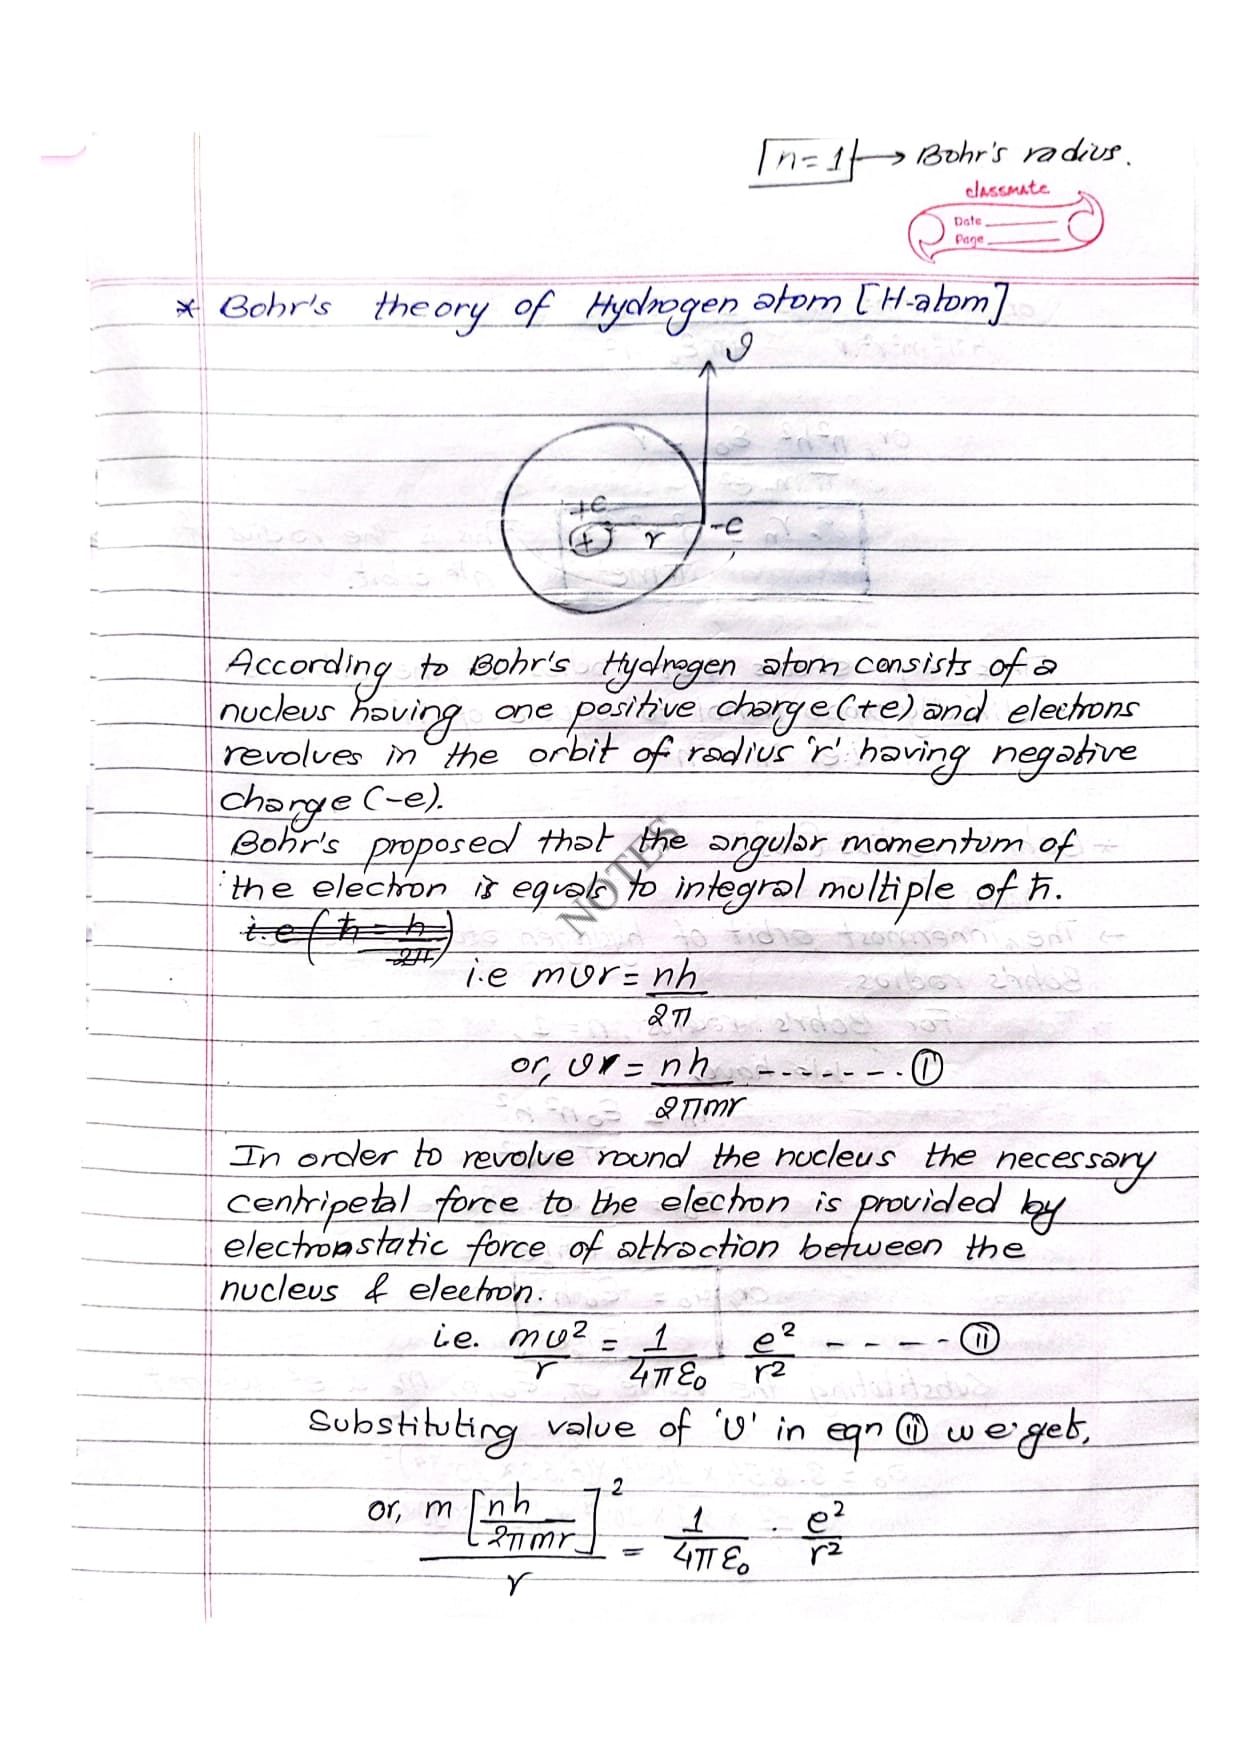 n=1 → Bohr's radius.
classmate
Date
Page
* Bohr's theory of Hydrogen atom [H-atom]
v
+e
-e
+ r
According to Bohr's Hydrogen atom consists of a
nucleus having one positive charge (+e) and electrons
revolves in the orbit of radius 'r' having negative
charge (-e).
Bohr's proposed that the angular momentum of
the electron is equals to integral multiple of ħ.
i.e (ħ = h/2π)
NOTES
i.e mvr = nh/2π
or, v = nh/2πmr ------- (i)
In order to revolve round the nucleus the necessary
centripetal force to the electron is provided by
electronstatic force of attraction between the
nucleus & electron.
i.e. mv²/r = 1/4πε₀ . e²/r² ---- (ii)
Substituting value of 'v' in eqn (ii) we get,
or, m [nh/2πmr]²/r = 1/4πε₀ . e²/r²